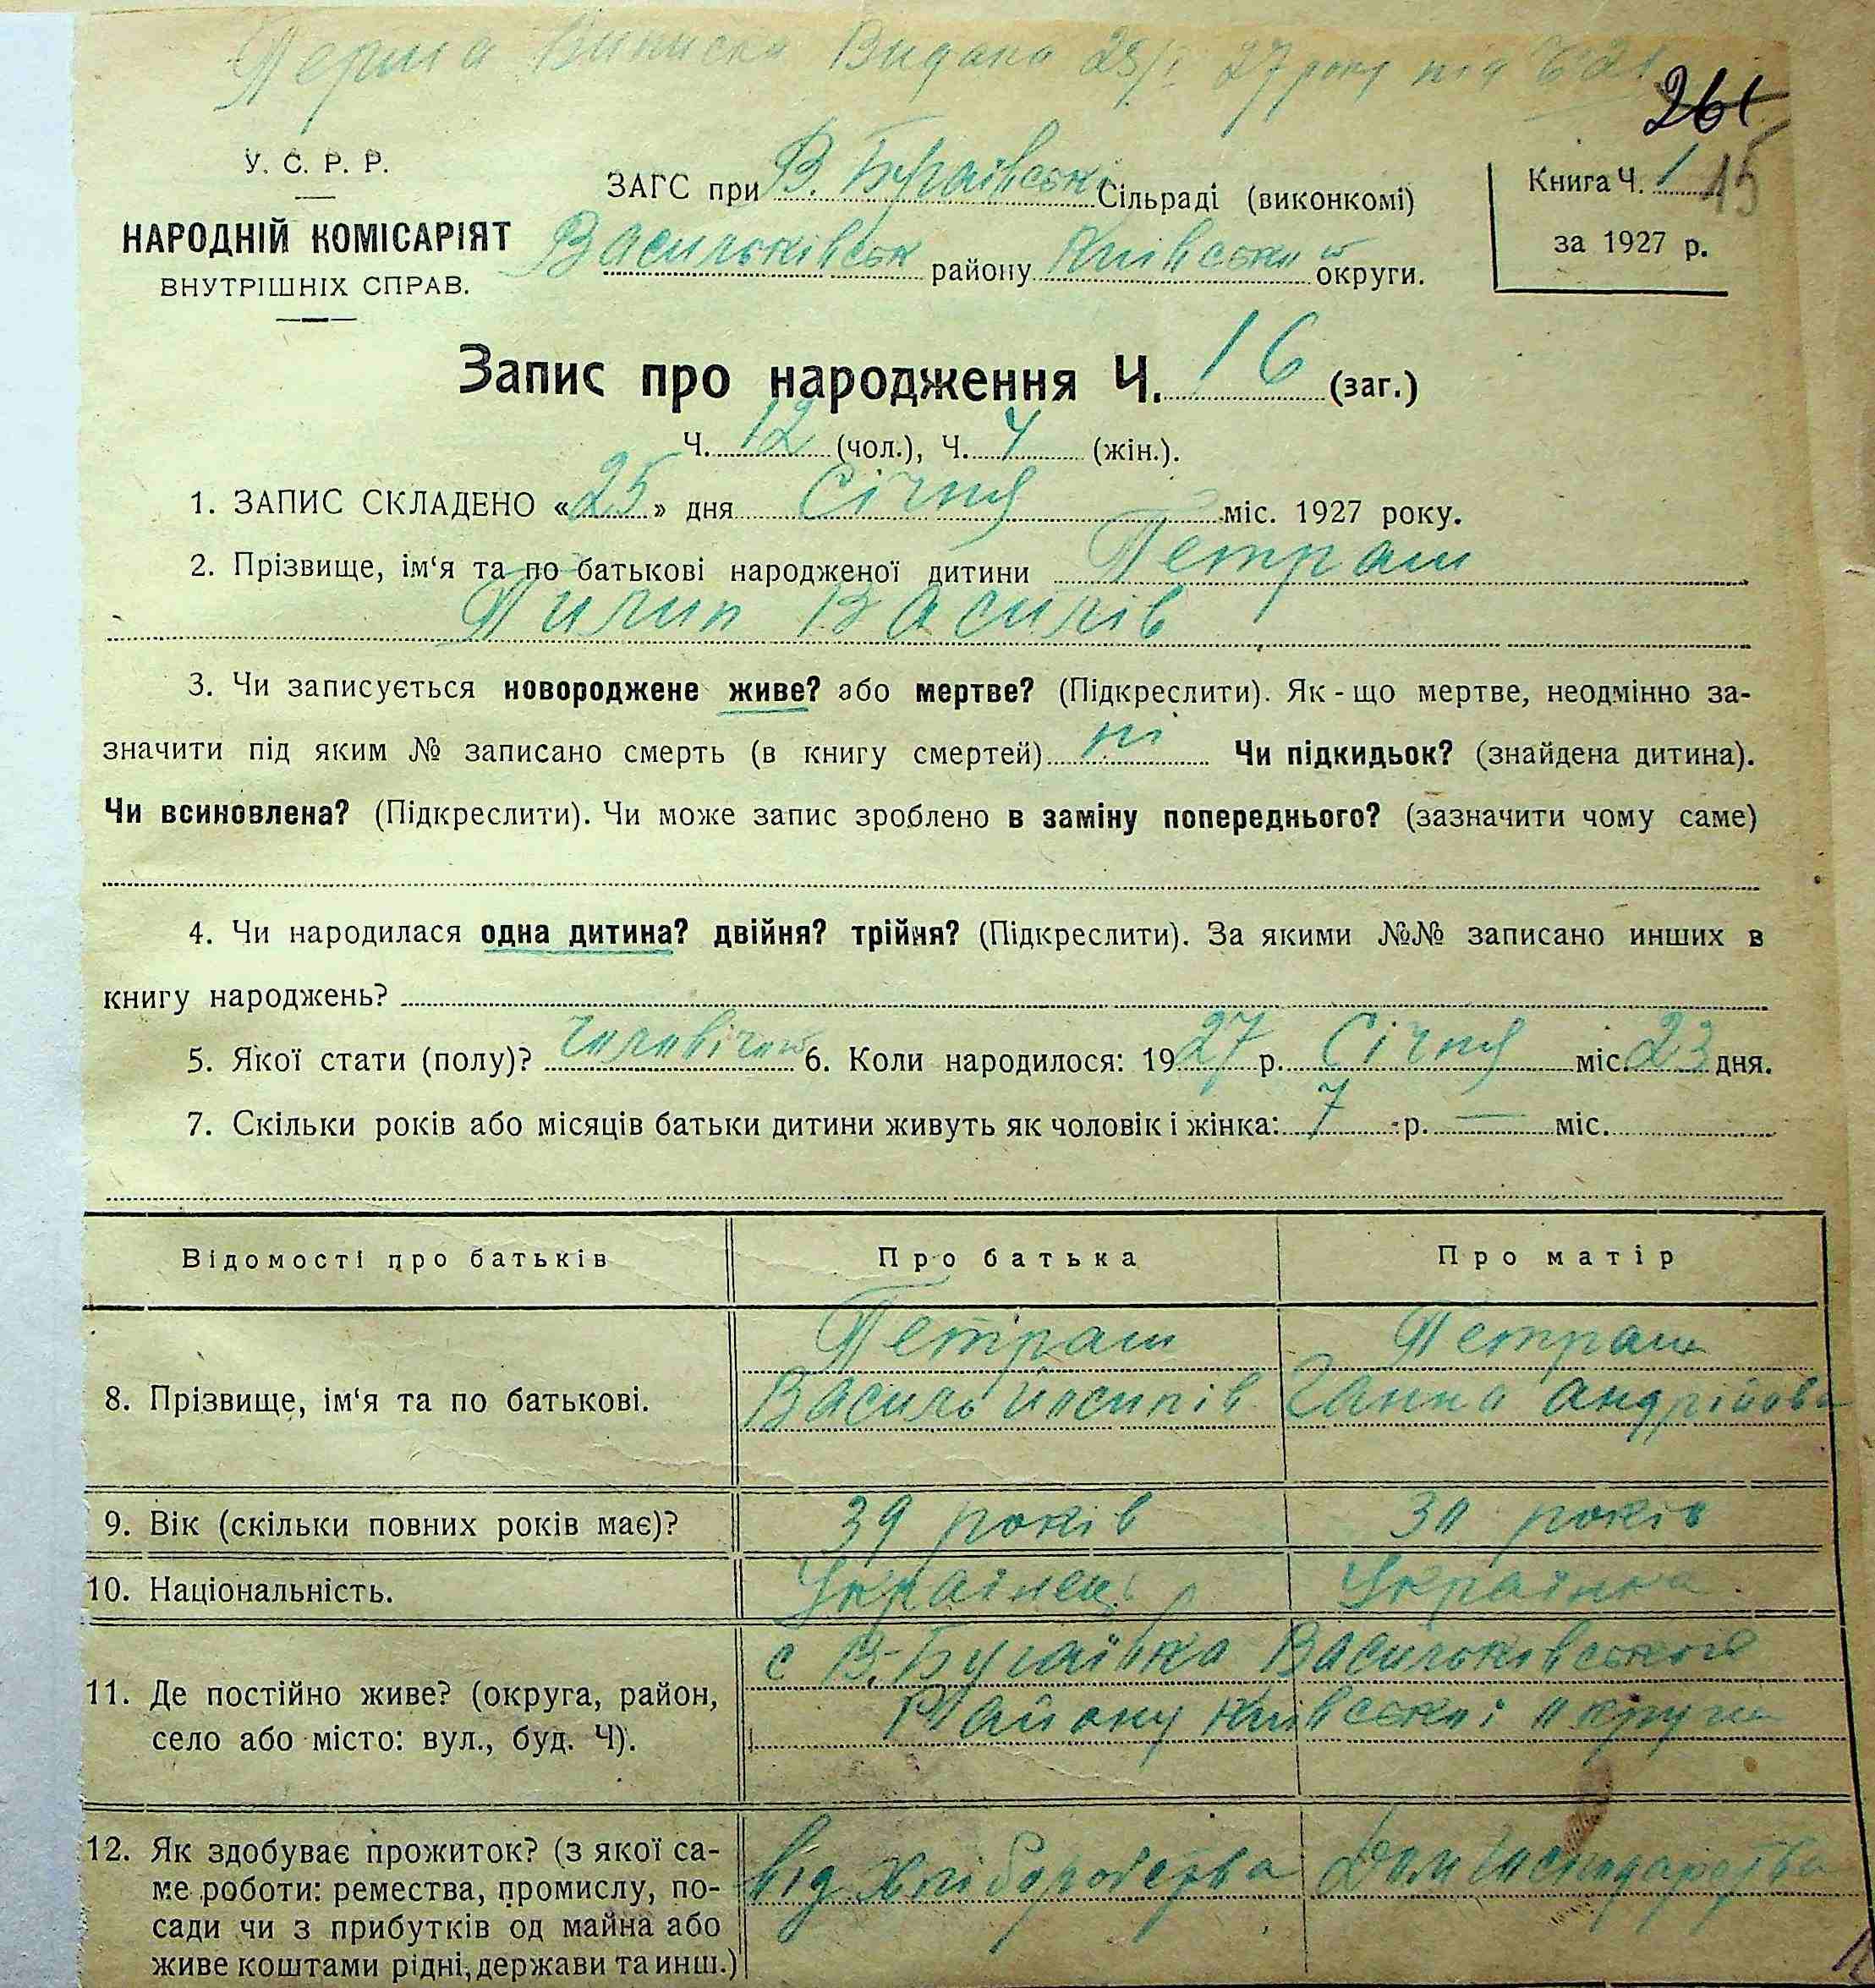 Перша Виписка Видана 25/I 27 року під № 21
261
У. С. Р. Р.
НАРОДНІЙ КОМІСАРІЯТ
ВНУТРІШНІХ СПРАВ.
ЗАГС при В. Бугаївські Сільраді (виконкомі)
Васильківськ району Київської округи.
Книга Ч. 1 15
за 1927 р.
Запис про народження Ч. 16 (заг.)
Ч. 12 (чол.), Ч. 4 (жін.).
1. ЗАПИС СКЛАДЕНО «25» дня Січня міс. 1927 року.
2. Прізвище, ім‘я та по батькові народженої дитини Петраш
Пилип Василів
3. Чи записується новороджене живе? або мертве? (Підкреслити). Як-що мертве, неодмінно за-
значити під яким № записано смерть (в книгу смертей) ні Чи підкидьок? (знайдена дитина).
Чи всиновлена? (Підкреслити). Чи може запис зроблено в заміну попереднього? (зазначити чому саме)
4. Чи народилася одна дитина? двійня? трійня? (Підкреслити). За якими №№ записано инших в
книгу народжень?
5. Якої стати (полу)? Чоловічої 6. Коли народилося: 1927 р. Січня міс. 23 дня.
7. Скільки років або місяців батьки дитини живуть як чоловік і жінка: 7 р. — міс.
Відомості про батьків Про батька Про матір
Петраш Петраш
8. Прізвище, ім‘я та по батькові. Василь Йосипів Ганна Андрійова
9. Вік (скільки повних років має)? 39 років 30 років
10. Національність. Українець Українка
с В. Бугаївка Васильківського
11. Де постійно живе? (округа, район, Району Київської округи
село або місто: вул., буд. Ч).
12. Як здобуває прожиток? (з якої са- від хліборобства Домгосподарства
ме роботи: ремества, промислу, по-
сади чи з прибутків од майна або
живе коштами рідні, держави та инш.)